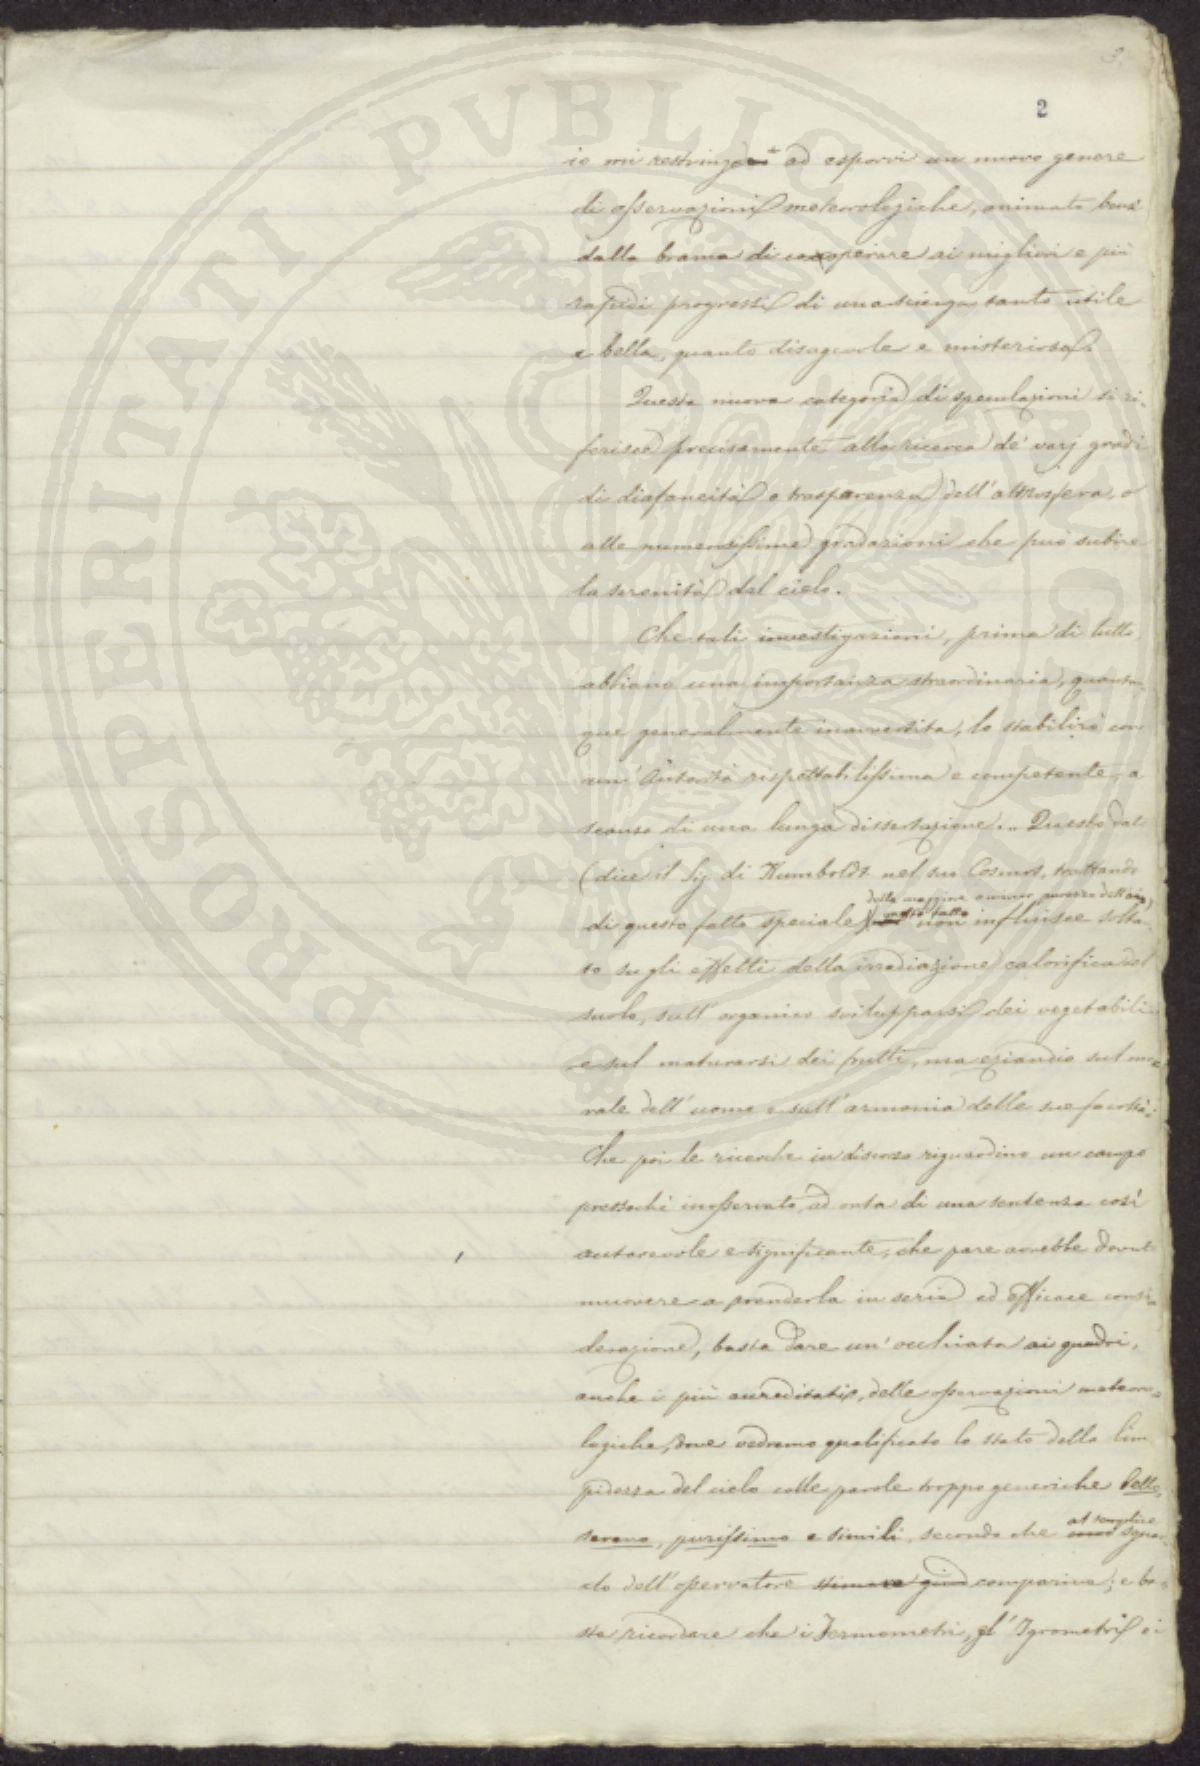 3.
2
io mi restringo ad esporvi un nuovo genere
di osservazioni meteorologiche, animato bensì
dalla brama di cooperare ai migliori e più
rapidi progressi di una scienza tanto utile
e bella, quanto disagevole e misteriosa.
Questa nuova categoria di speculazioni si ri-
ferisce precisamente alla ricerca de' varj gradi
di diafaneità o trasparenza dell'atmosfera, o
alle numerosissime gradazioni che può subire
la serenità del cielo.
Che tali investigazioni, prima di tutto
abbiano una importanza straordinaria, quantun-
que generalmente inavvertita, lo stabilirò con
un'Autorità rispettabilissima e competente, a
scanso di una lunga dissertazione... Questo dat
(dice il Sig di Humboldt nel suo Cosmos, trattando
della maggiore o minor purezza dell'aria)
di questo fatto speciale questo fatto non influisce solta-
to su gli effetti della irradiazione calorifica del
suolo, sull'organico svilupparsi dei vegetabili
e sul maturarsi dei frutti, ma eziandio sul mo-
rale dell'uomo e sull'armonia delle sue facoltà:
Che poi le ricerche in discorso riguardino un campo
pressochè inosservato, ad onta di una sentenza così
autorevole e significante, che pare avrebbe dovut
muovere a prenderla in seria ed efficace consi-
derazione, basta dare un'occhiata ai quadri,
anche i più accreditati, delle osservazioni meteoro-
logiche, dove vedremo qualificato lo stato della lim
pidezza del cielo colle parole troppo generiche bello,
sereno, purissimo e simili, secondo che al semplice sguar-
do dell'osservatore stimava giud compariva; e ba-
sta ricordare che i Termometri, gl'Igrometri e i